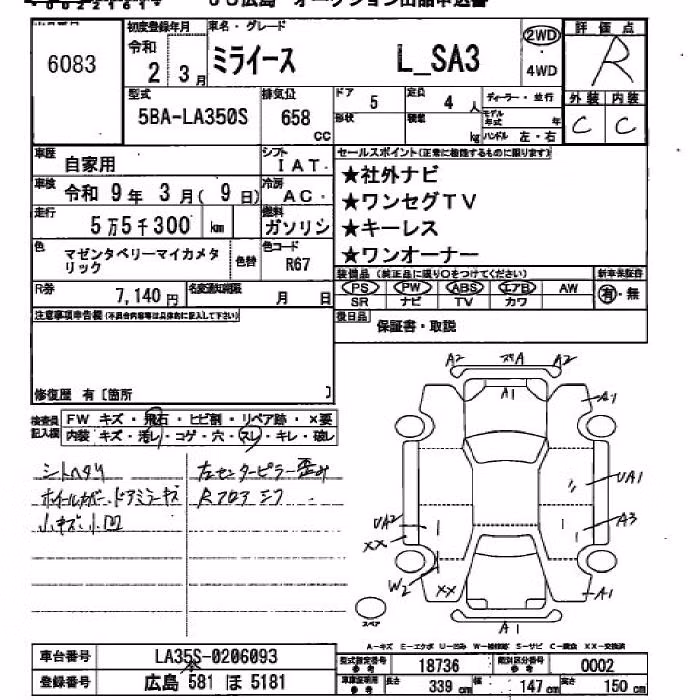 6083
初度登録年月
令和
2 3月
車名・グレード
ミライース L_SA3
2WD
4WD
評価点
R
型式
5BA-LA350S
排気量
658 cc
ドア 5
定員 4 人
ディーラー・並行
形状
積載 kg
モデル年式 年
ハンドル 左・右
外装 内装
C C
車歴
自家用
シフト
IAT
セールスポイント(正常に機能するものに限ります)
★社外ナビ
★ワンセグTV
★キーレス
★ワンオーナー
車検
令和 9年 3月( 9日)
冷房
AC
走行
5万5千300 km
燃料
ガソリン
色
マゼンタベリーマイカメタリック
色替
色コード
R67
装備品(純正品に限り○をつけてください)
新車保証書
PS PW ABS エアB AW
SR ナビ TV カワ
有・無
R券
7,140円
名変通知期限
月 日
後日品
保証書・取説
注意事項申告欄(不具合内容等は具体的に記入して下さい)
修復歴 有〔箇所 〕
検査員記入欄
FW キズ・飛石・ヒビ割・リペア跡・×要
内装 キズ・汚レ・コゲ・穴・スレ・キレ・破レ
シートヘタリ
ホイールカバー、ドアミラーキズ
小キズ小凹
左センターピラー歪み
Rフロア
A2 A A2
A1
A1
UA1
UA2
A3
XX
W2
XX
A1
A1
スペア
A-キズ E-エクボ U-凹み W-補修跡 S-サビ C-腐食 XX-交換済
車台番号
LA35S-0206093
登録番号
広島 581 ほ 5181
型式指定番号 参考
18736
類別区分番号 参考
0002
車検証明 参考
長さ 339 cm
幅 147 cm
高さ 150 cm